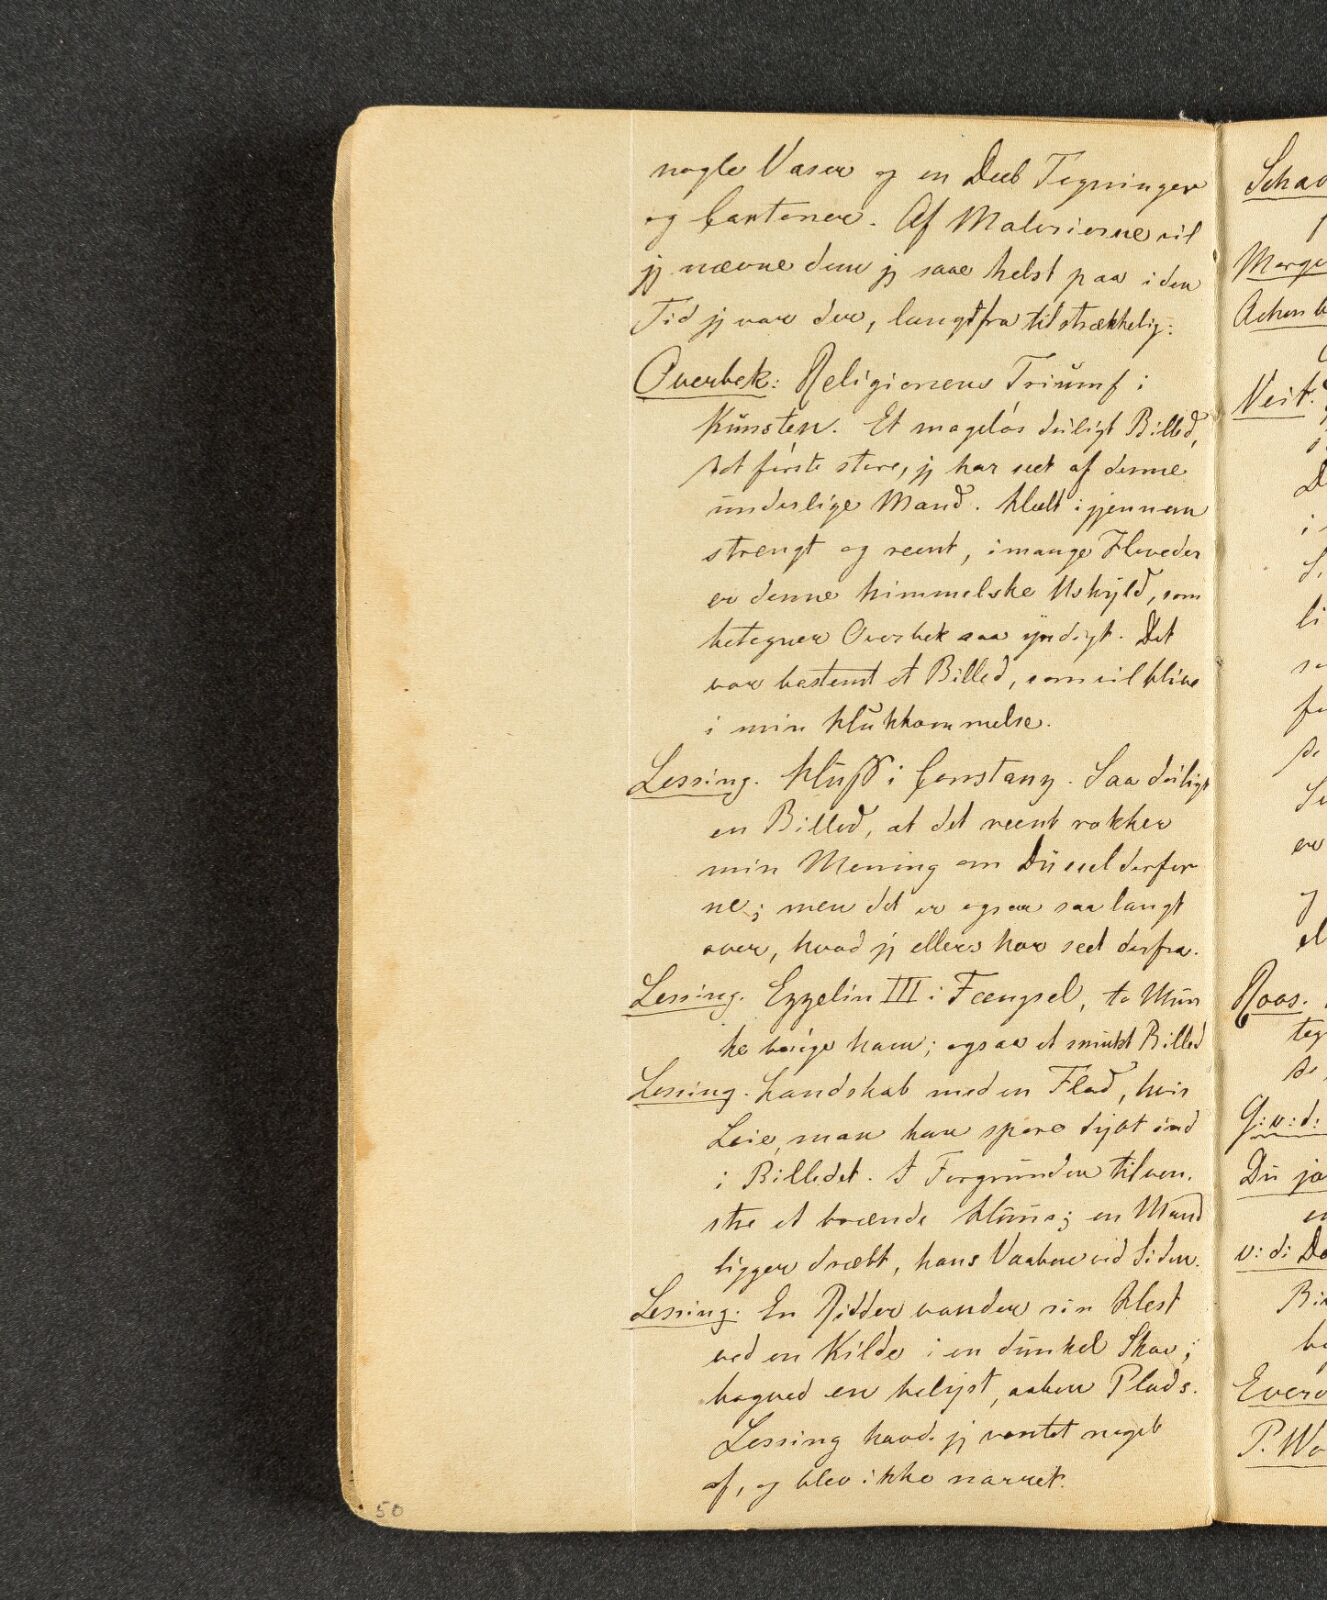 nogle Vaser og en Deel Tegninger
og Cartoner. Af Malerierne vil
jg nævne dem jg saae helst paa i den
Tid jg var der, langtfra tilstrækkelig:
Overbek: Religionens Triumf i
Kunsten. Et mageløs deiligt Billed,
det første store, jg har seet af denne
underlige Mand. Heelt igjennem
strengt og reent, i mange Hoveder
er denne himmelske Uskyld, som
betegner Overbek saa yndigt. Det
var bestemt et Billed, som vil blive
i min Hukkommelse.
Lessing. Huss i Constanz. Saa deiligt
en Billed, at det reent rokker
min Mening om Düsseldorfer
ne; men det er ogsaa saa langt
over, hvad jg ellers har seet derfra.
Lessing. Ezzelin III i Fængsel, to Mun
ke besøge ham; ogsaa et smukt Billed
Lessing. Landskab med en Flod, hvis
Leie man kan spore dybt ind
i Billedet. I Forgrunden tilven.
stre et brænde Huus; en Mand
ligger dræbt, hans Vaaben ved Siden.
Lessing. En Ridder vander sin Hest
ved en Kilde i en dunkel Skov;
bagved en belyst, aaben Plads.
Lessing havde jg ventet noget
af, og blev ikke narret.
50
Scha
Achenb
Veit.
D
i
li
er
og
el
Roos.
teg
G: v: d:
Du ja
en
v: d: Do
Bi
Ever
P. Wo